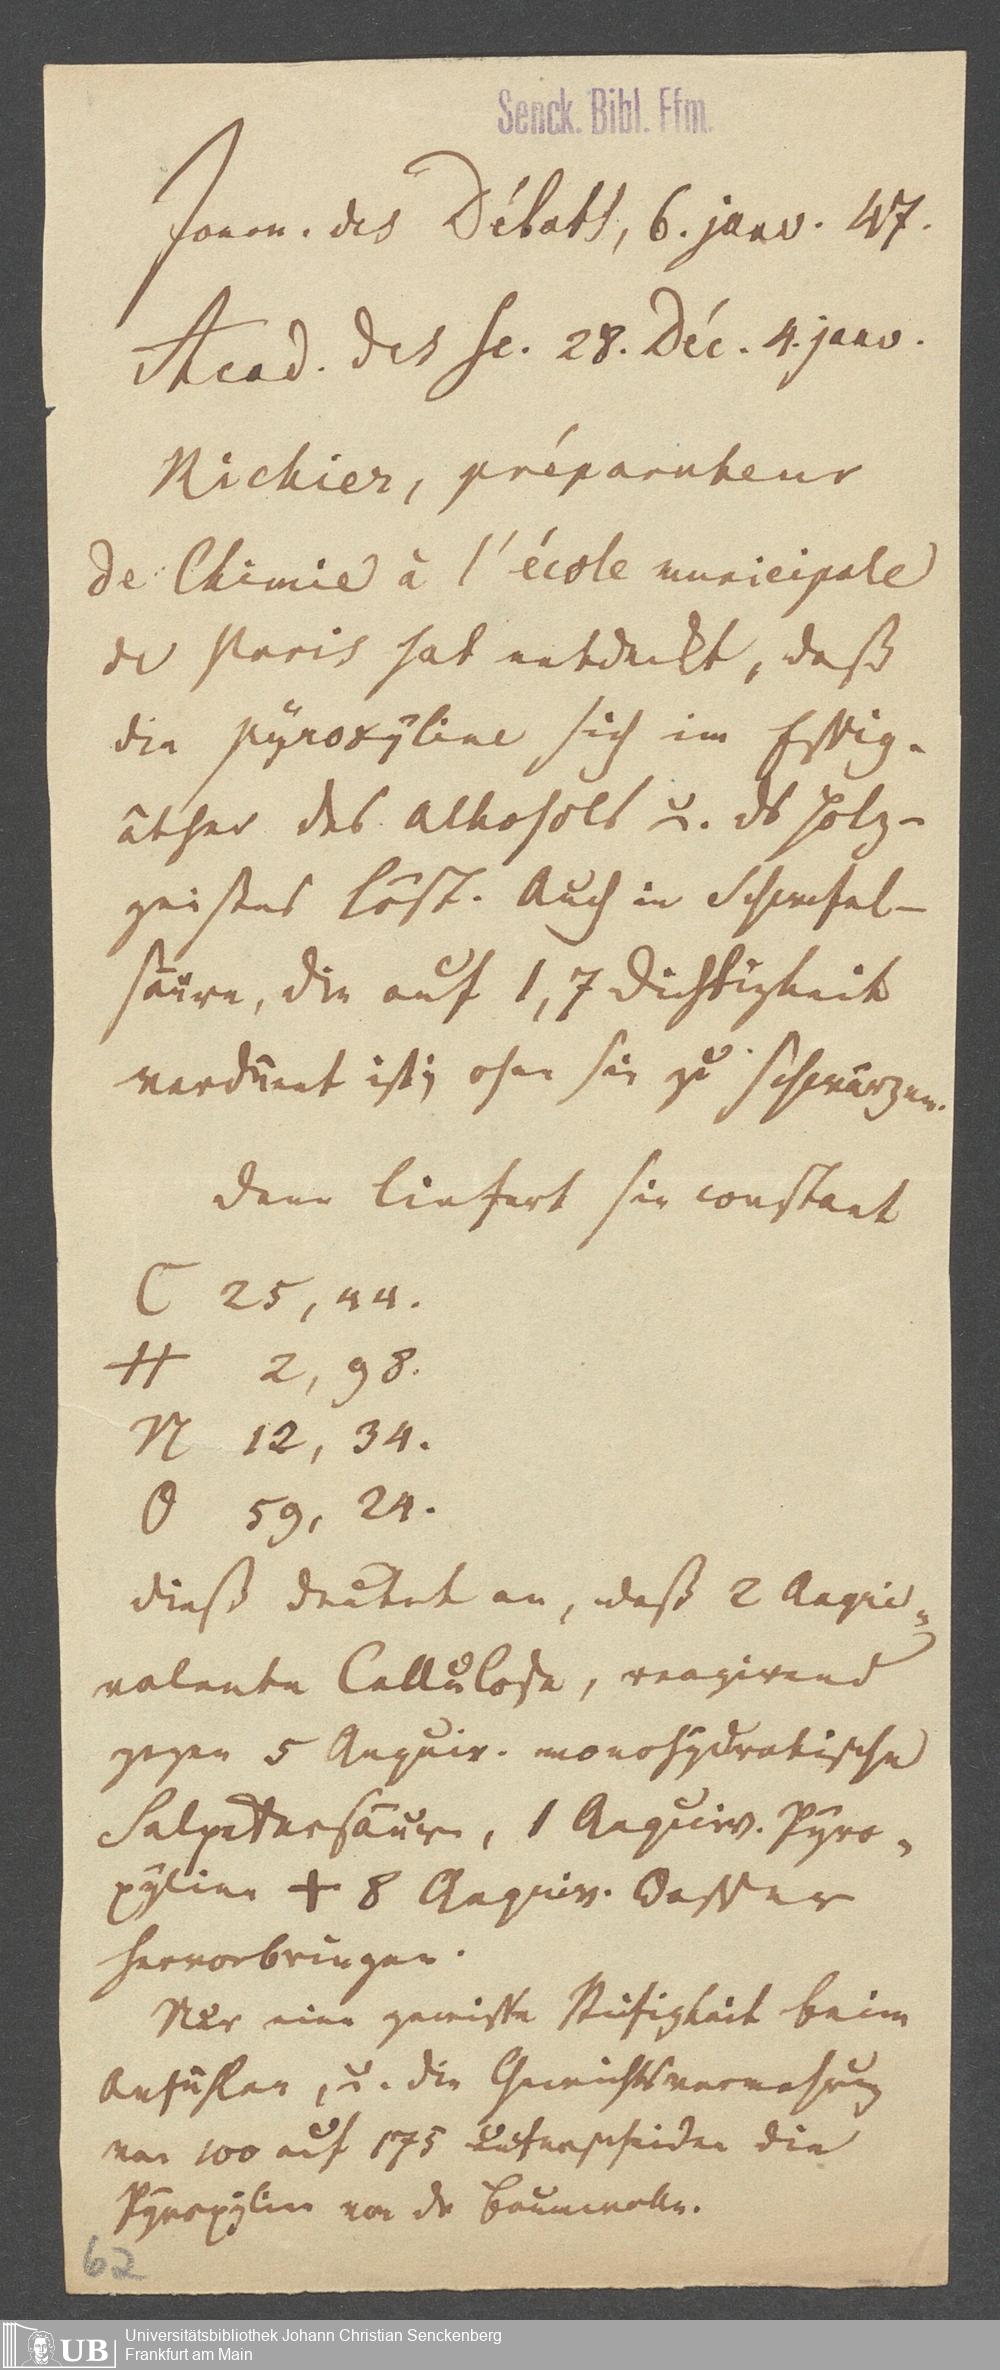 Senck. Bibl. Ffm.
Journ. des Débats, 6. janv. 47.
Acad. des Sc. 28. Déc. 4. janv.
Richier, préparateur
de Chimie à l'école municipale
de Paris hat entdeckt, daß
die pÿroxÿline sich im Essig-
äther des Alkohols u. ds Holz-
geistes löst. Auch in Schwefel-
säure, die auf 1,7 Dichtigkeit
verdünnt ist; ohne sie zu schwärzen.
Dann liefert sie constant
C 25,44.
H 2,98.
N 12,34.
O 59,24.
dieß deutet an, daß 2 Aequi-
valente Cellulose, reagirend
gegen 5 Aequiv. monohÿdratische
Salpetersäure, 1 Aequiv. Pÿro-
xÿline + 8 Aequiv. Wasser
hervorbringen.
Nur eine gewisse Steifigkeit beim
Anfühlen, u. die Gewichtsvermehrung
von 100 auf 175 unterscheiden die
Pÿroxÿlin von der Baumwolle.
62
UB
Universitätsbibliothek Johann Christian Senckenberg
Frankfurt am Main